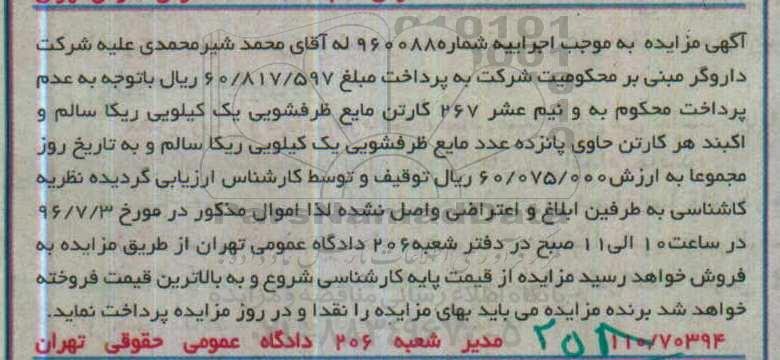 آگهی مزایده به موجب اجراییه شماره ۹۶۰۰۸۸ له آقای محمد شیرمحمدی علیه شرکت
داروگر مبنی بر محکومیت شرکت به پرداخت مبلغ ۶۰/۸۱۷/۵۹۷ ریال باتوجه به عدم
پرداخت محکوم به و نیم عشر ۲۶۷ کارتن مایع ظرفشویی یک کیلویی ریکا سالم و
اکبند هر کارتن حاوی پانزده عدد مایع ظرفشویی یک کیلویی ریکا سالم و به تاریخ روز
مجموعا به ارزش ۶۰/۰۷۵/۰۰۰ ریال توقیف و توسط کارشناس ارزیابی گردیده نظریه
کاشناسی به طرفین ابلاغ و اعتراضی واصل نشده لذا اموال مذکور در مورخ ۹۶/۷/۳
در ساعت۱۰ الی۱۱ صبح در دفتر شعبه۲۰۶ دادگاه عمومی تهران از طریق مزایده به
فروش خواهد رسید مزایده از قیمت پایه کارشناسی شروع و به بالاترین قیمت فروخته
خواهد شد برنده مزایده می باید بهای مزایده را نقدا و در روز مزایده پرداخت نماید.
۱۱۰/۷۰۳۹۴ مدیر شعبه ۲۰۶ دادگاه عمومی حقوقی تهران